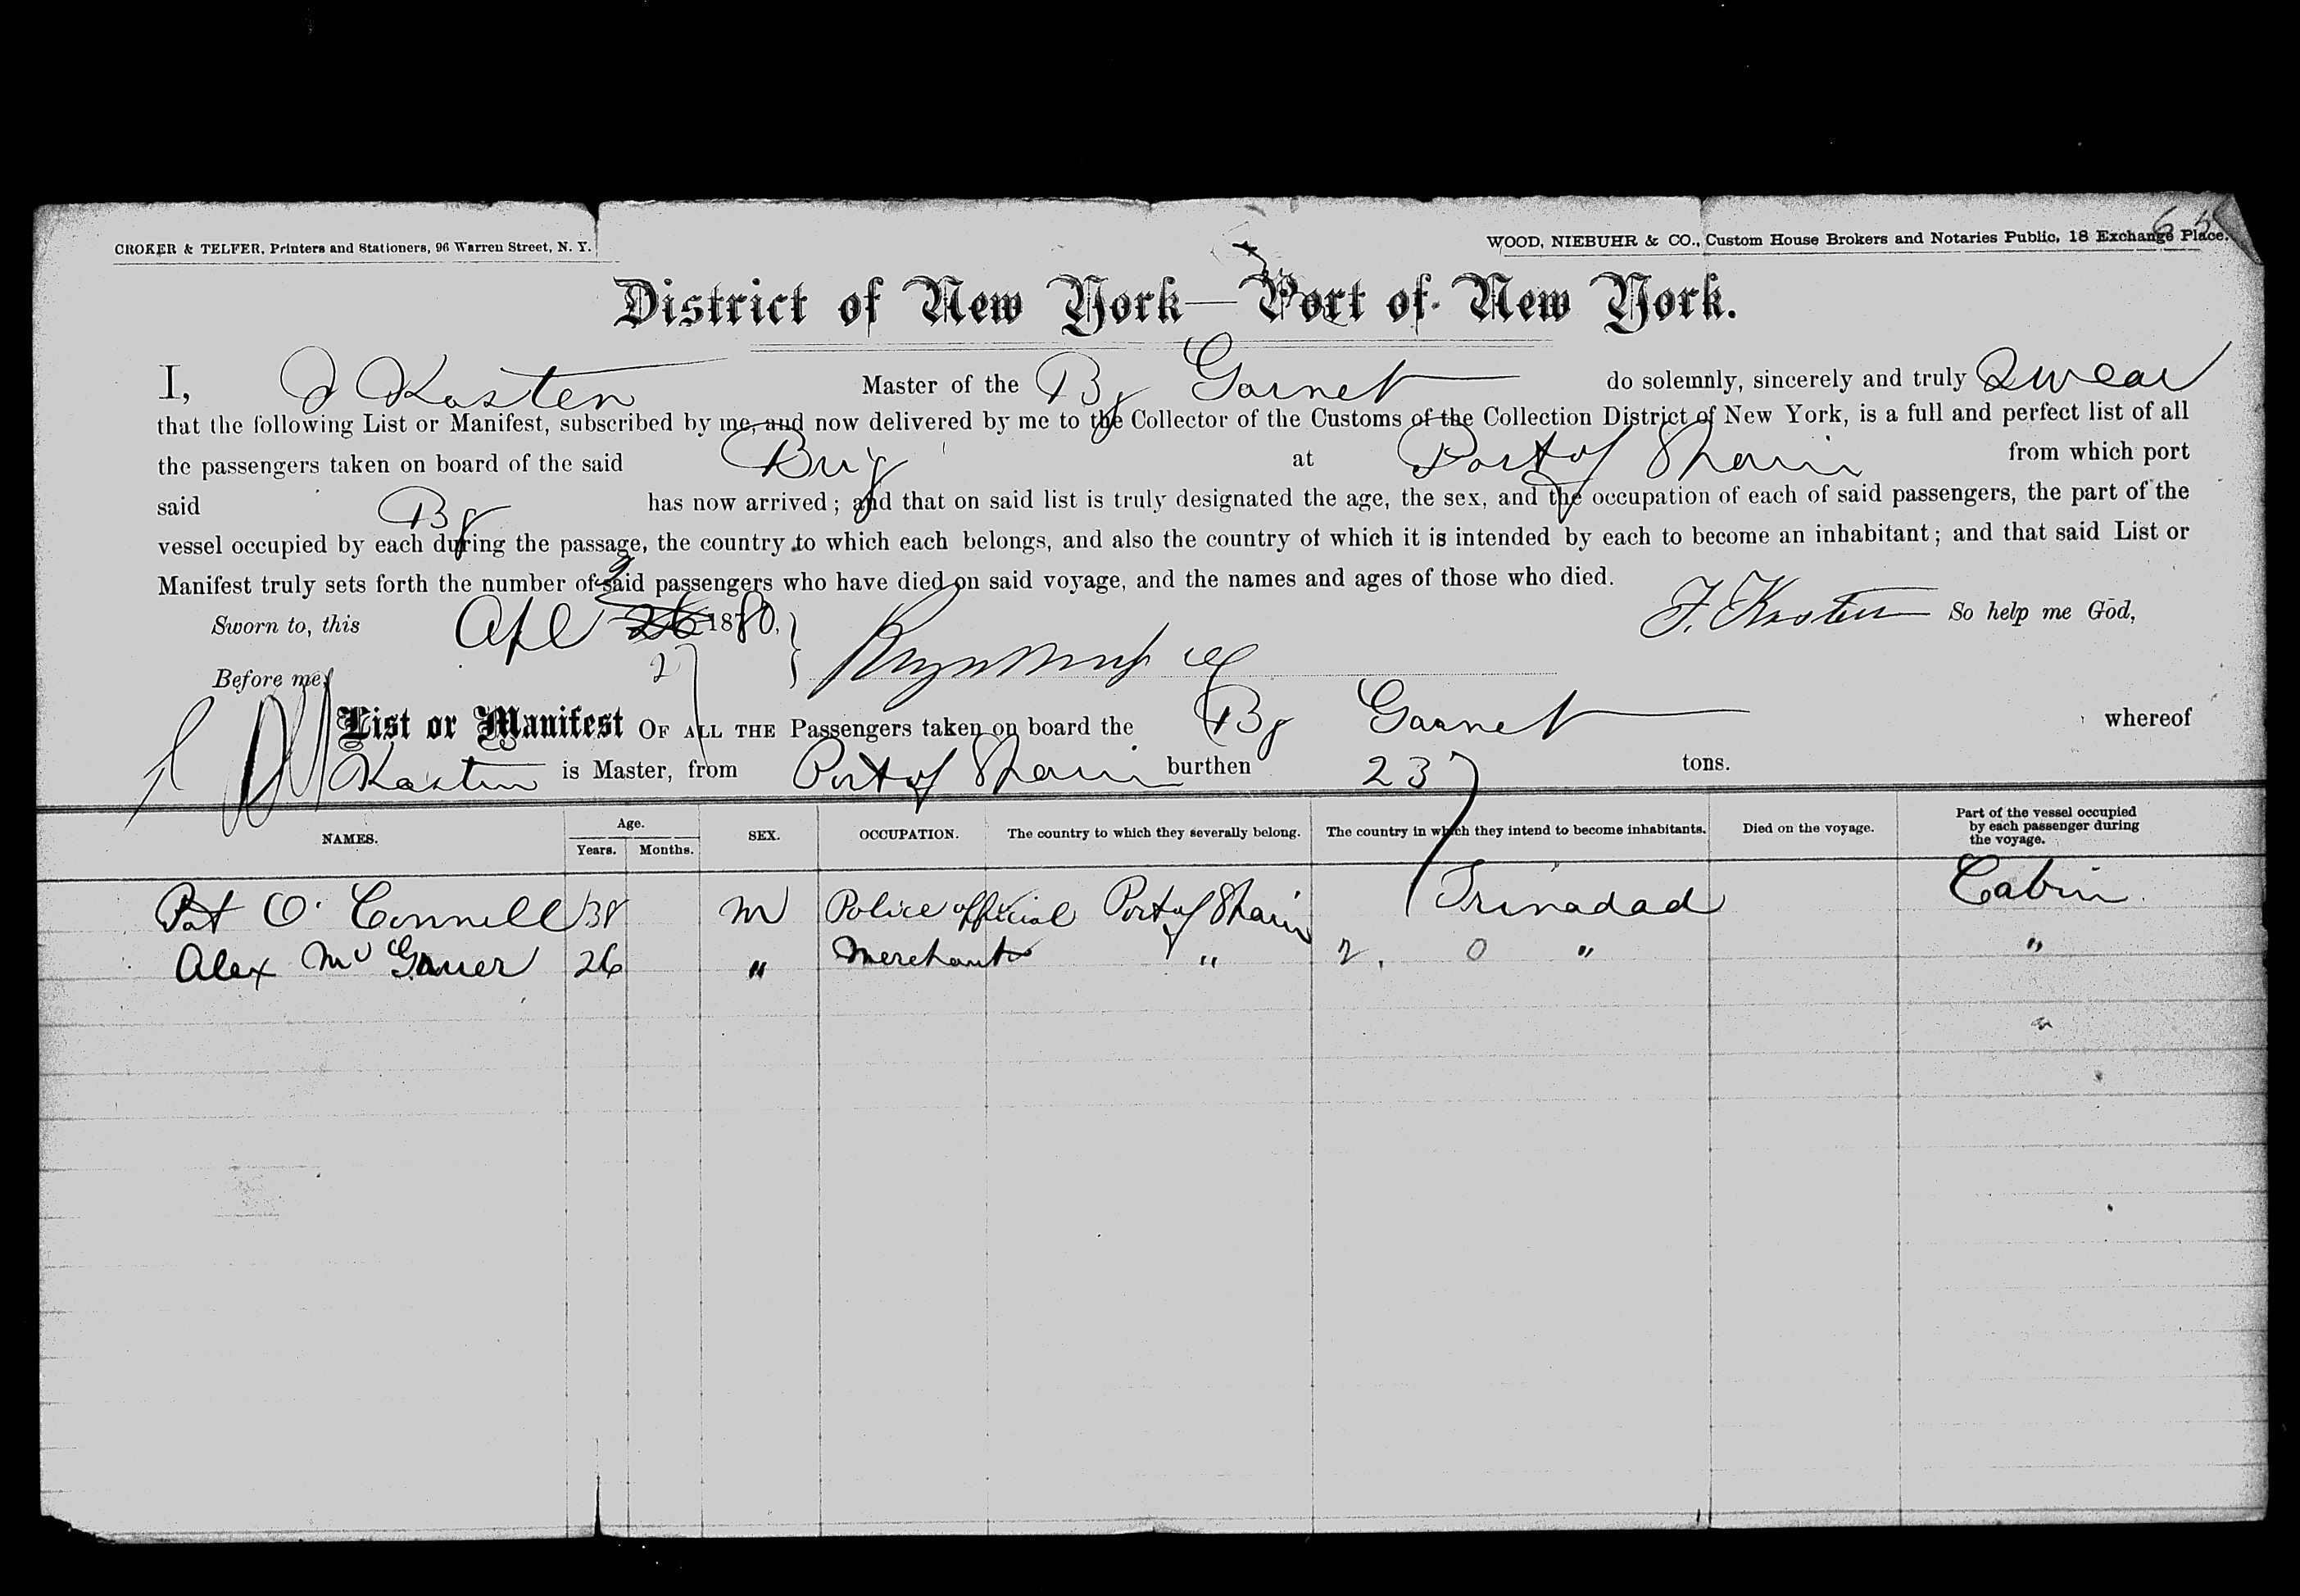 CROKER & TELFER, Printers and Stationers, 96 Warren Street, N. Y.
WOOD, NIEBUHR & CO., Custom House Brokers and Notaries Public, 18 Exchange Place.
District of New York—Port of New York.
I, J Kasten Master of the Bg Garnet do solemnly, sincerely and truly Swear
that the following List or Manifest, subscribed by me, and now delivered by me to the Collector of the Customs of the Collection District of New York, is a full and perfect list of all
the passengers taken on board of the said Brig at Port of Spain from which port
said Bg has now arrived; and that on said list is truly designated the age, the sex, and the occupation of each of said passengers, the part of the
vessel occupied by each during the passage, the country to which each belongs, and also the country of which it is intended by each to become an inhabitant; and that said List or
Manifest truly sets forth the number of said passengers who have died on said voyage, and the names and ages of those who died.
Sworn to, this Apl 26 1880, F. Kasten So help me God,
27
Before me
List or Manifest OF ALL THE Passengers taken on board the Bg Garnet whereof
Kasten is Master, from Port of Spain burthen 237 tons.
NAMES. Age. Years. Months. SEX. OCCUPATION. The country to which they severally belong. The country in which they intend to become inhabitants. Died on the voyage. Part of the vessel occupied by each passenger during the voyage.
Pat O'Connell 38 M Police official Port of Spain Trinadad Cabin
Alex Mc 26 " Merchant " 2. 0 " "